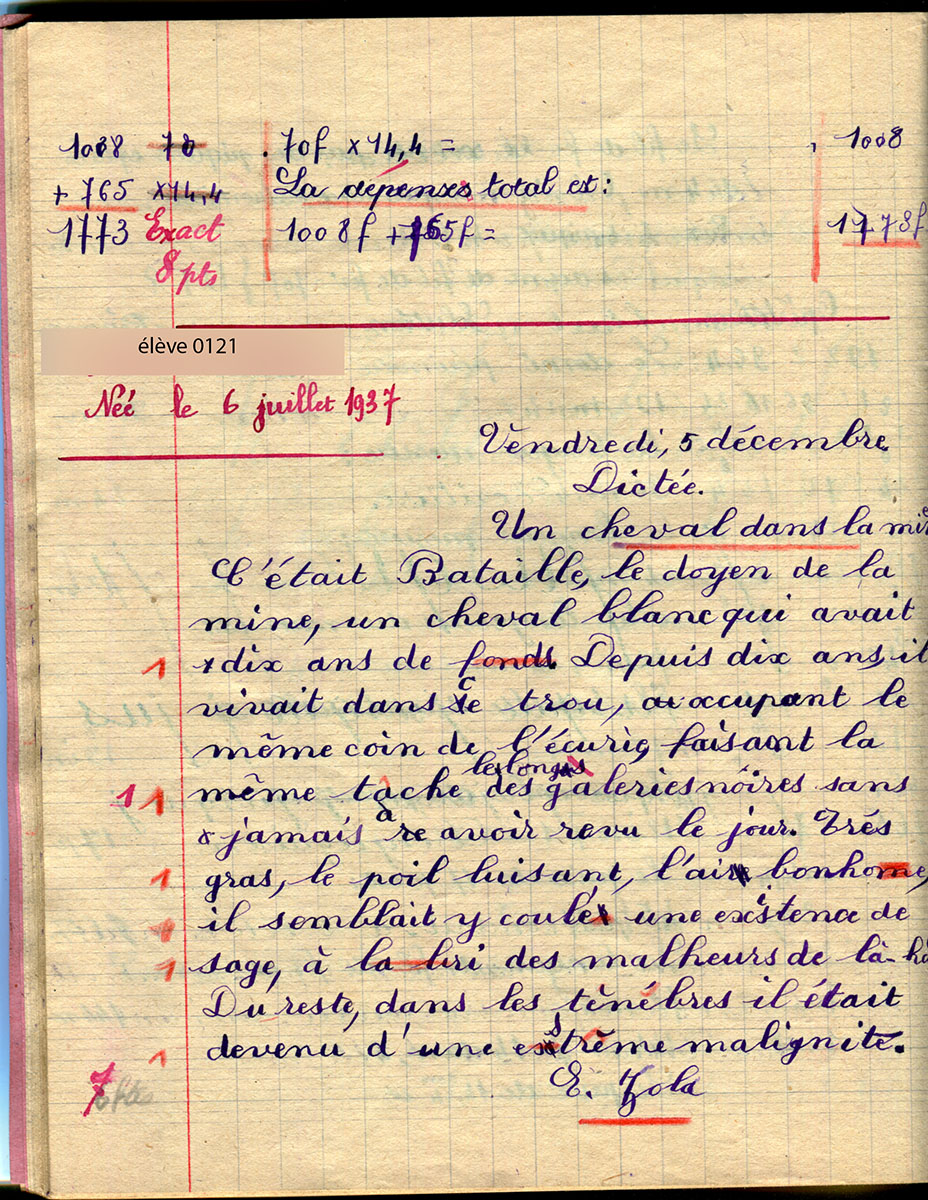 1008 70 . 70f × 14,4 = , 1008
+ 765 ×14,4 La dépenses total est :
1773 Exact 1008f + 765f = 1773f
8 pts
élève 0121
Neé le 6 juillet 1937
Vendredi, 5 décembre
Dictée.
Un cheval dans la mine
C'était Bataille, le doyen de la
mine, un cheval blanc qui avait
1 dix ans de fonds. Depuis dix ans, il
vivait dans ce trou, occupant le
même coin de l'écurie, faisant la
les longs
1 1 même tache des galeries nôires sans
jamais a re avoir revu le jour. Trés
1 gras, le poil luisant, l'air bonhome,
1 il semblait y coulé une existence de
1 sage, à la bri des malheurs de là-ha
Du reste, dans les ténébres il était
1 devenu d'une estrême malignité.
7 ftes
E. Zola